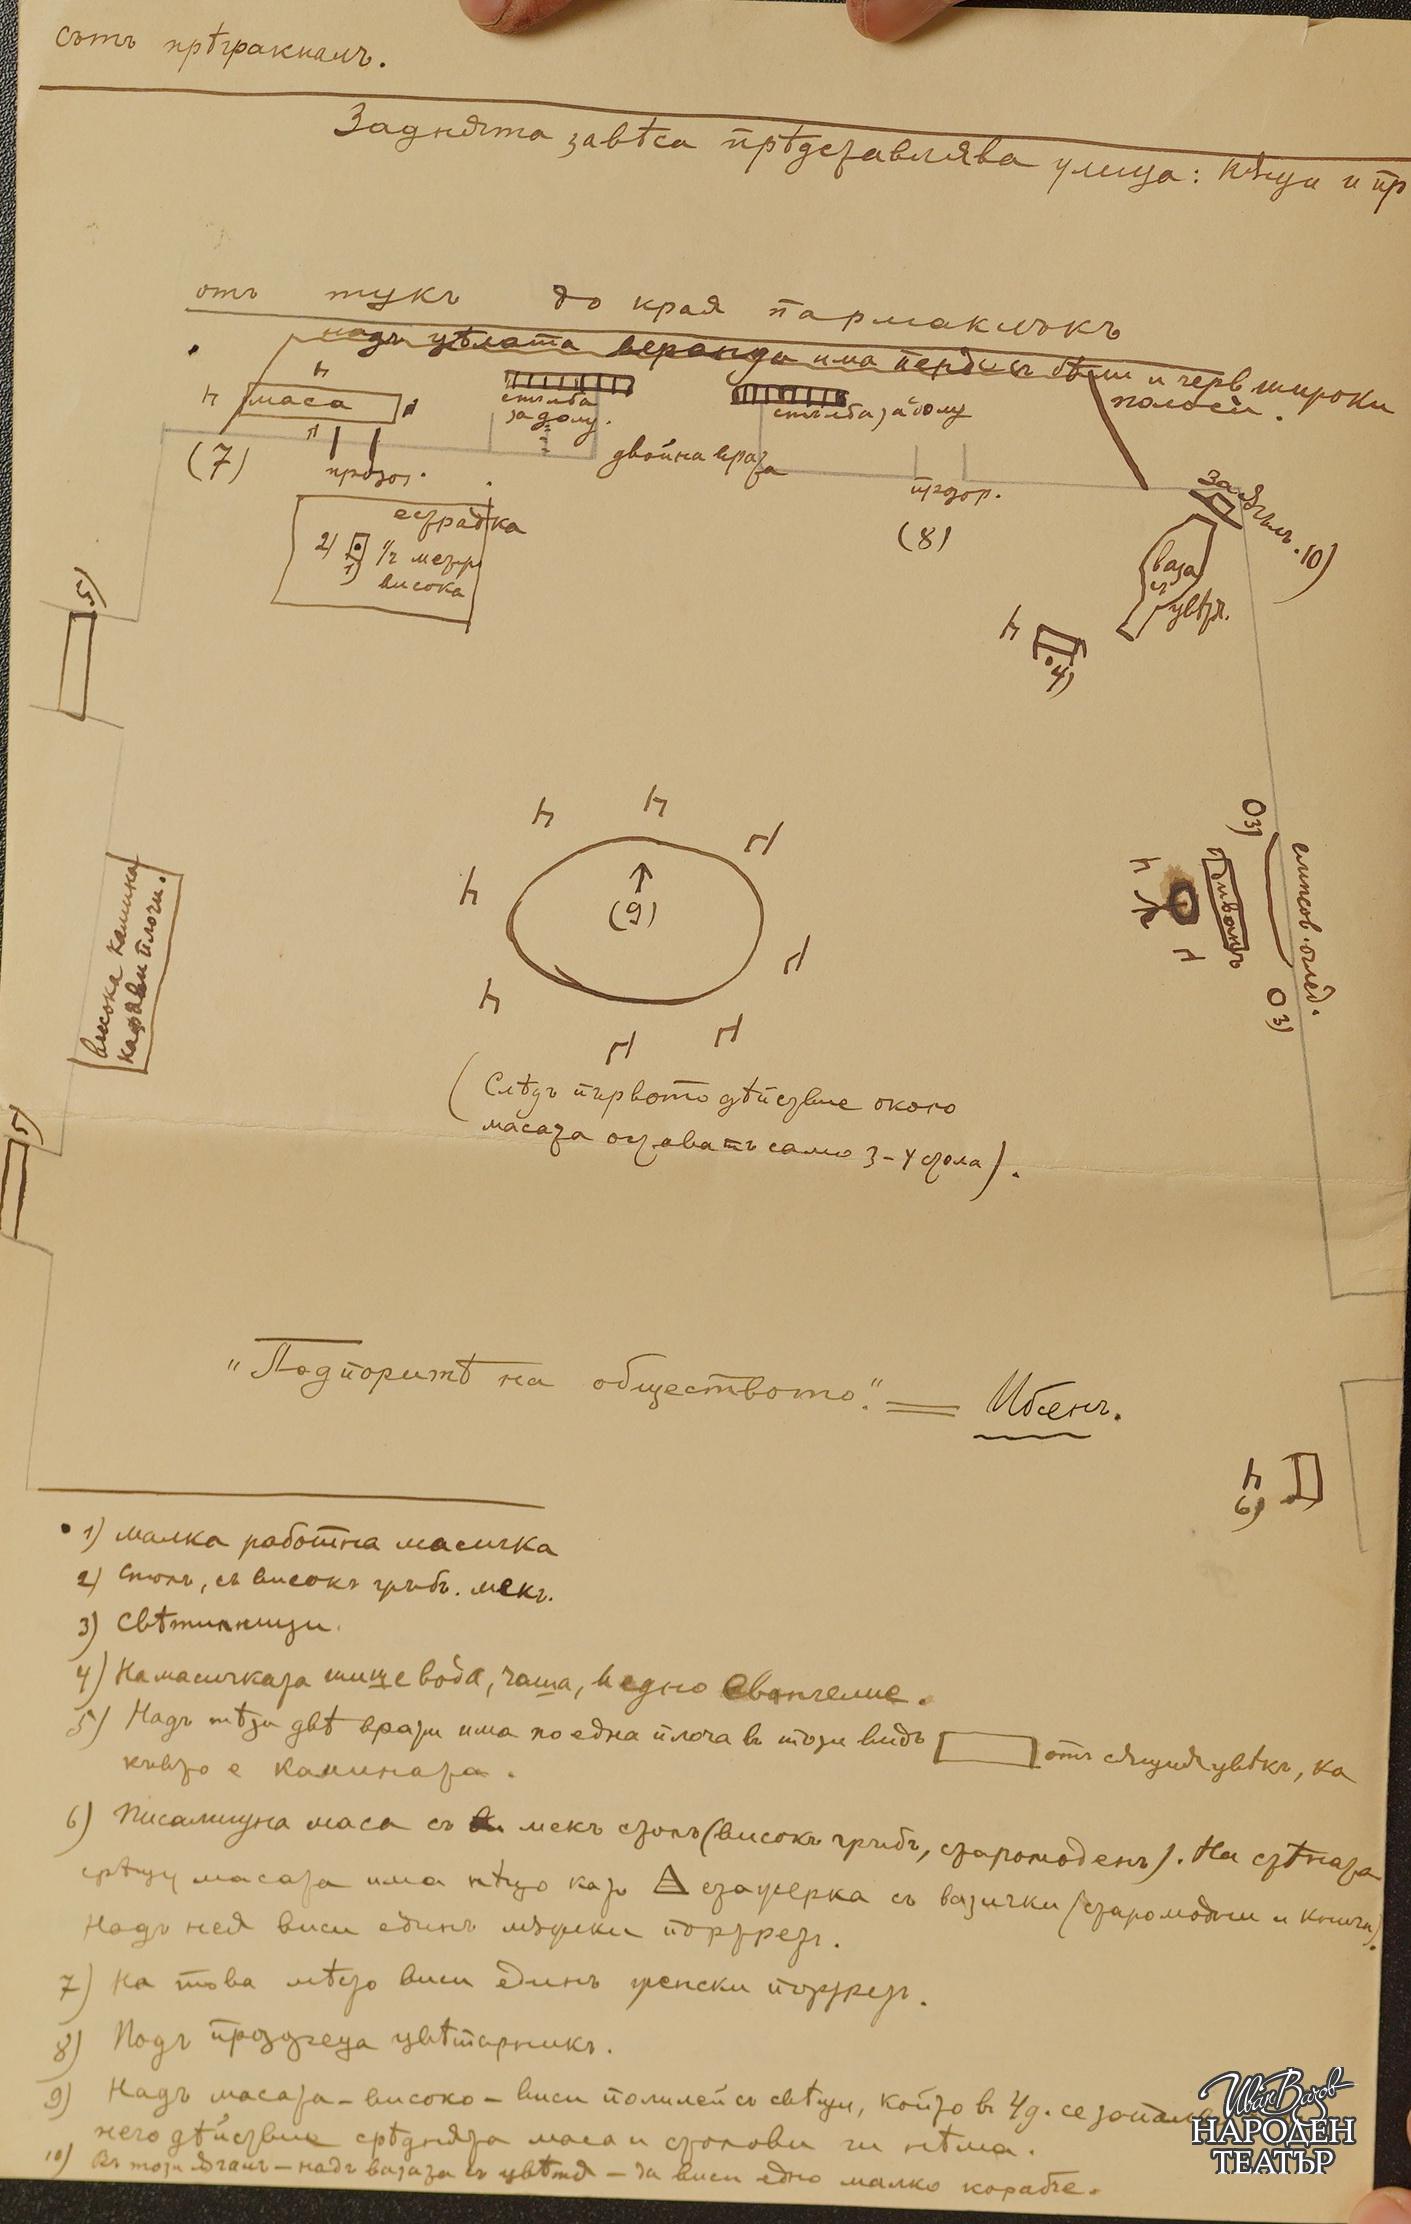 сотъ
Задната завѣса прѣдставлява улица: кѫщи и пр
отъ тукъ до края пармаклъкъ
надъ цѣлата веранда има перде съ бѣли и черв. широки
полоси.
маса
стълба
за долу.
стълба за долу
(7)
прозор.
двойна врата
прозор.
(8)
естрадка
2)
1)
1/2 метр.
висока
за ѫгълъ. 10)
ваза
съ
цвѣтя.
4)
5)
(9)
03)
диванъ
елипсов. оглед.
03)
висока камина
кафяви плочи.
5)
(Слѣдъ първото дѣйствие около
масата оставатъ само 3-4 стола).
"Подпоритѣ на обществото." = Ибсенъ.
6)
1) малка работна масичка
2) Столъ, съ високъ гръбъ. мекъ.
3) Свѣтилници.
4) На масичката шише вода, чаша, и едно евангелие.
5) Надъ тѣзи двѣ врати има по една плоча въ този видъ отъ сѫщия цвѣтъ, ка
квото е камината.
6) Писалищна маса съ мекъ столъ (високъ гръбъ, старомоденъ). На стѣната
срѣщу масата има нѣщо като етажерка съ вазички (старомодни и книги).
Надъ нея виси единъ мѫжки портретъ.
7) На това мѣсто виси единъ женски портретъ.
8) Подъ прозореца цвѣтарникъ.
9) Надъ масата - високо - виси полилей съ свѣщи, който въ 4 д. се запалва
него дѣйствие срѣдната маса и столови ги нѣма.
10) Въ този ѫгълъ - надъ вазата съ цвѣтя - да виси едно малко корабче.
Иван Вазов
НАРОДЕН
ТЕАТЪР